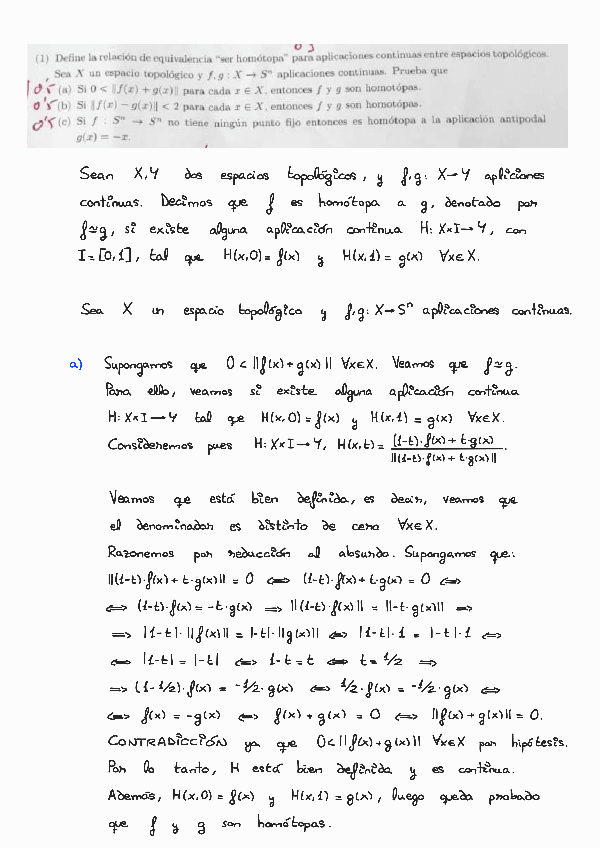 0'5
(1) Define la relación de equivalencia "ser homótopa" para aplicaciones continuas entre espacios topológicos.
Sea X un espacio topológico y f, g : X → Sⁿ aplicaciones continuas. Prueba que
1 0'5 (a) Si 0 < ‖f(x) + g(x)‖ para cada x ∈ X, entonces f y g son homotópas.
0'5 (b) Si ‖f(x) − g(x)‖ < 2 para cada x ∈ X, entonces f y g son homotópas.
0'5 (c) Si f : Sⁿ → Sⁿ no tiene ningún punto fijo entonces es homótopa a la aplicación antipodal
g(x) = −x.
Sean X,Y dos espacios topológicos, y f,g: X→Y apliciones
continuas. Decimos que f es homótopa a g, denotado por
f≃g, si existe alguna aplicación continua H: X×I→Y, con
I=[0,1], tal que H(x,0)=f(x) y H(x,1)=g(x) ∀x∈X.
Sea X un espacio topológico y f,g: X→Sⁿ aplicaciones continuas.
a) Supongamos que 0<||f(x)+g(x)|| ∀x∈X. Veamos que f≃g.
Para ello, veamos si existe alguna aplicación continua
H: X×I→Y tal que H(x,0)=f(x) y H(x,1)=g(x) ∀x∈X.
Consideremos pues H: X×I→Y, H(x,t)= ((1-t)·f(x)+t·g(x))/||(1-t)·f(x)+t·g(x)||.
Veamos que está bien definida, es decir, veamos que
el denominador es distinto de cero ∀x∈X.
Razonemos por reducción al absurdo. Supongamos que:
||(1-t)·f(x)+t·g(x)||=0 ⟺ (1-t)·f(x)+t·g(x)=0 ⟺
⟺ (1-t)·f(x)=-t·g(x) ⟹ ||(1-t)·f(x)||=||-t·g(x)|| ⟹
⟹ |1-t|·||f(x)||=|-t|·||g(x)|| ⟺ |1-t|·1=|-t|·1 ⟺
⟺ |1-t|=|-t| ⟺ 1-t=t ⟺ t=1/2 ⟹
⟹ (1-1/2)·f(x)=-1/2·g(x) ⟺ 1/2·f(x)=-1/2·g(x) ⟺
⟺ f(x)=-g(x) ⟺ f(x)+g(x)=0 ⟺ ||f(x)+g(x)||=0.
CONTRADICCIÓN ya que 0<||f(x)+g(x)|| ∀x∈X por hipótesis.
Por lo tanto, H está bien definida y es continua.
Además, H(x,0)=f(x) y H(x,1)=g(x), luego queda probado
que f y g son homótopas.